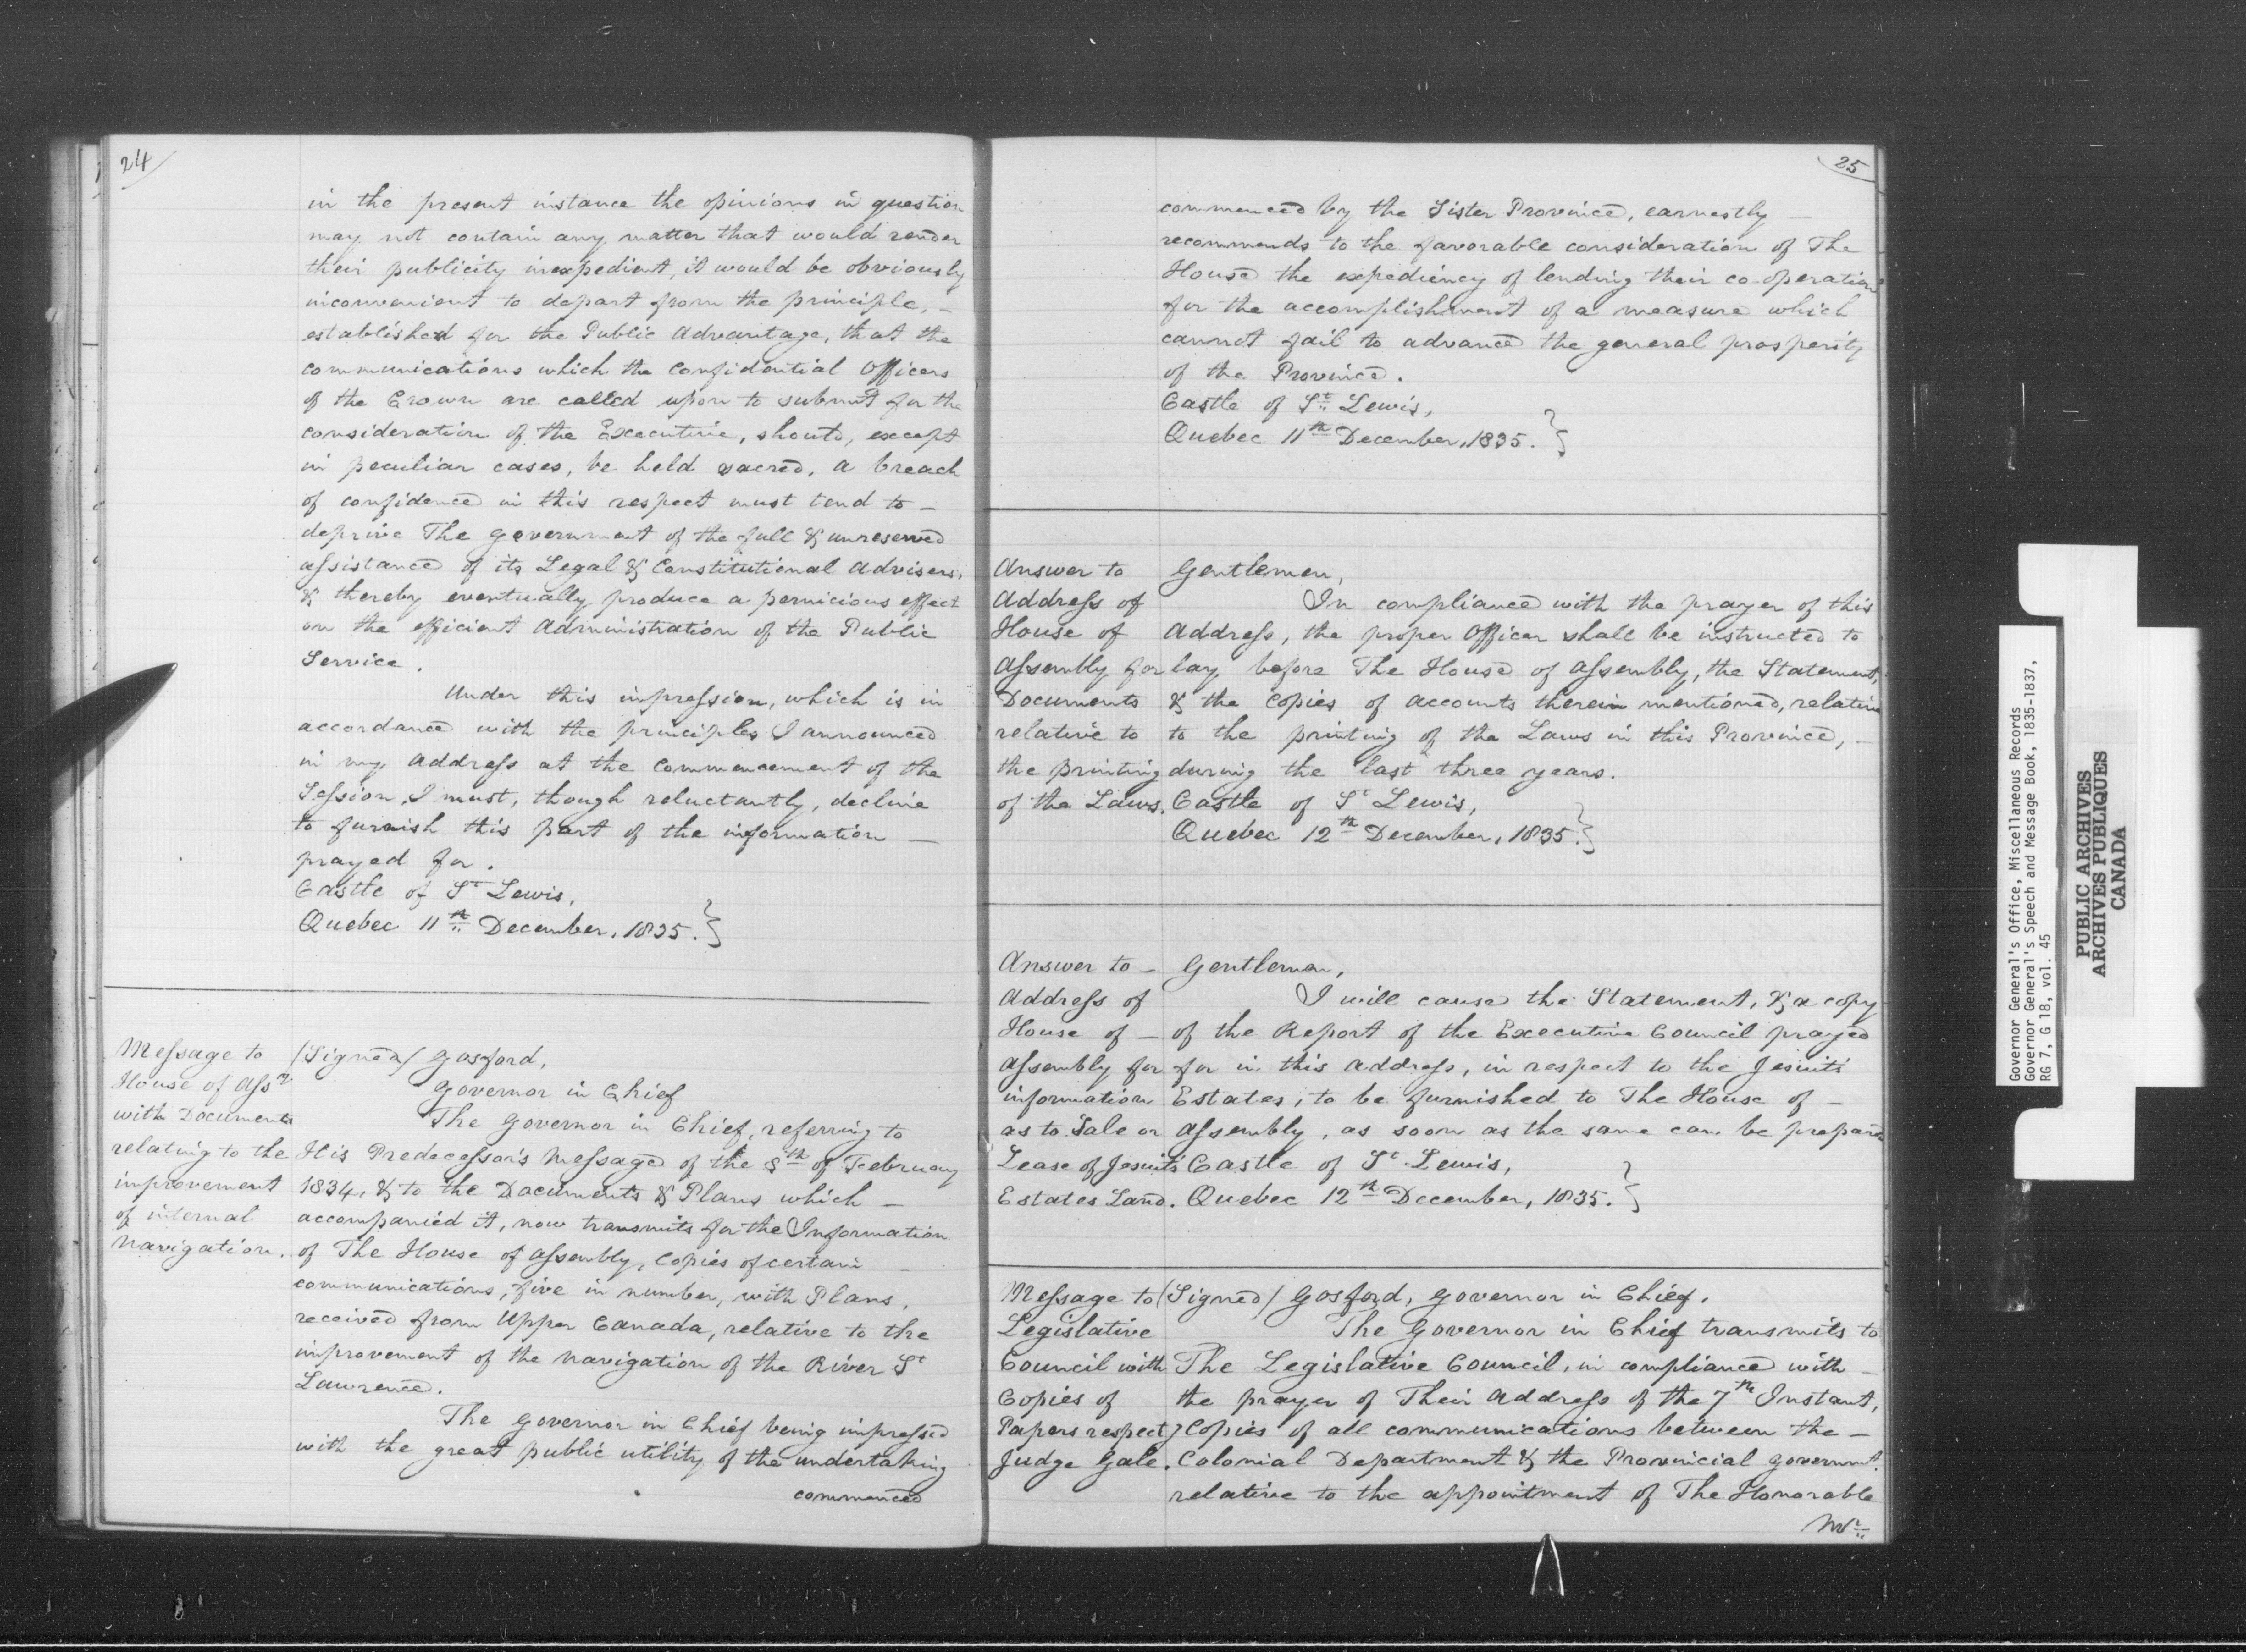 24
in the present instance the opinions in question
may not contain any matter that would render
their publicity inexpedient, it would be obviously
inconvenient to depart from the principle, –
established for the Public Advantage, that the
communications which the Confidential Officers
of the Crown are called upon to submit for the
consideration of the Executive, should, except
in peculiar cases, be held sacred. A breach
of confidence in this respect must tend to –
deprive The Government of the full & unreserved
assistance of its Legal & Constitutional Advisers,
& thereby eventually produce a pernicious effect
on the efficient Administration of the Public
Service.
Under this impression, which is in
accordance with the principles I announced
in my Address at the Commencement of the
Session, I must, though reluctantly, decline
to furnish this part of the information –
prayed for.
Castle of St Lewis,
Quebec 11th December, 1835. }
Message to
House of Assy
with Documents
relating to the
improvement
of internal
Navigation.
/Signed/ Gosford,
Governor in Chief
The Governor in Chief, referring to
His Predecessor's Message of the 8th of February
1834, & to the Documents & Plans which –
accompanied it, now transmits for the Information
of The House of Assembly, Copies of certain –
communications, five in number, with Plans,
received from Upper Canada, relative to the
improvement of the Navigation of the River St
Lawrence.
The Governor in Chief being impressed
with the great public utility of the undertaking
commenced
25
commenced by the Sister Province, earnestly –
recommends to the favorable consideration of The
House the expediency of lending their co-operation
for the accomplishment of a measure which
cannot fail to advance the general prosperity
of the Province.
Castle of St Lewis,
Quebec 11th December, 1835. }
Answer to
Address of
House of
Assembly for
Documents
relative to
the printing
of the Laws.
Gentlemen,
In compliance with the prayer of this
Address, the proper Officer shall be instructed to
lay before The House of Assembly, the Statement,
& the Copies of accounts therein mentioned, relative
to the printing of the Laws in this Province, –
during the last three years.
Castle of St Lewis,
Quebec 12th December, 1835. }
Answer to –
Address of
House of –
Assembly for
information
as to Sale or
Lease of Jesuits
Estates Land.
Gentlemen,
I will cause the Statement, & a copy
of the Report of the Executive Council prayed
for in this Address, in respect to the Jesuits
Estates, to be furnished to The House of –
Assembly, as soon as the same can be prepared
Castle of St Lewis,
Quebec 12th December, 1835. }
Message to
Legislative
Council with
Copies of
Papers respectg
Judge Gale.
/Signed/ Gosford, Governor in Chief.
The Governor in Chief transmits to
The Legislative Council, in compliance with –
the prayer of Their Address of the 7th Instant,
Copies of all communications between the –
Colonial Department & the Provincial Governmt.
relative to the appointment of The Honorable
Mr
Governor General's Office, Miscellaneous Records
Governor General's Speech and Message Book, 1835-1837,
RG 7, G 18, vol. 45
PUBLIC ARCHIVES
ARCHIVES PUBLIQUES
CANADA